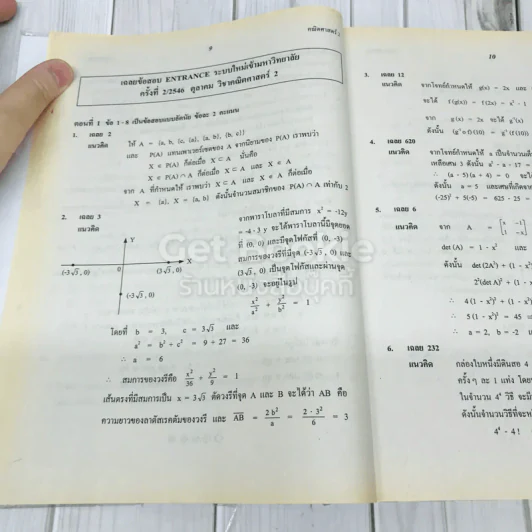 9
คณิตศาสตร์ 2
เฉลยข้อสอบ ENTRANCE ระบบใหม่เข้ามหาวิทยาลัย
ครั้งที่ 2/2546 ตุลาคม วิชาคณิตศาสตร์ 2
ตอนที่ 1 ข้อ 1-8 เป็นข้อสอบแบบอัตนัย ข้อละ 2 คะแนน
1. เฉลย 2
แนวคิด ให้ A = {a, b, {c, {a}, {a, b}, {b, c}}
และ P(A) แทนเพาเวอร์เซตของ A จากนิยามของ P(A) เราพบว่า
X ∈ P(A) ก็ต่อเมื่อ X ⊂ A นั่นคือ
X ∈ P(A) ∩ A ก็ต่อเมื่อ X ⊂ A และ X ∈ A
จาก A ที่กำหนดให้ เราพบว่า X ⊂ A และ X ∈ A ก็ต่อเมื่อ
X = {a}, X = {a, b} ดังนั้นจำนวนสมาชิกของ P(A) ∩ A เท่ากับ 2
2. เฉลย 3
แนวคิด
Y
X
(-3√3, 0)
0
(3√3, 0)
(0, -3)
จากพาราโบลาที่มีสมการ x² = -12y
= -4·3y จะได้พาราโบลานี้มีจุดยอด
ที่ (0, 0) และมีจุดโฟกัสที่ (0, -3)
สมการของวงรีที่มีจุด (-3√3, 0) และ
(3√3, 0) เป็นจุดโฟกัสและผ่านจุด
(0, -3) จะอยู่ในรูป
x²/a² + y²/b² = 1
โดยที่ b = 3, c = 3√3 และ
a² = b² + c² = 9 + 27 = 36
∴ a = 6
∴ สมการของวงรีคือ x²/36 + y²/9 = 1
เส้นตรงที่มีสมการเป็น x = 3√3 ตัดวงรีที่จุด A และ B จะได้ว่า AB คือ
ความยาวของลาตัสเรคตัมของวงรี และ AB = 2b²/a = 2·3²/6 = 3
10
3. เฉลย 12
แนวคิด จากโจทย์กำหนดให้ g(x) = 2x และ
จะได้ f(g(x)) = f(2x) = x² - 1
จาก g(x) = 2x จะได้
ดังนั้น
4. เฉลย 620
แนวคิด จากโจทย์กำหนดให้ a เป็นจำนวนเต็
เหลือเศษ 3 ดังนั้น
∴ (a - 5)(a + 4) = 0 จะได้
ดังนั้น a = 5 และเศษที่เกิดจา
(-25)² + 5(-5) = 625 - 25 =
5. เฉลย 6
แนวคิด จาก A =
det (A) = 1 - x² และ
ดังนั้น det (2A²) + (1 - x
2²(det A)² + (1 - x
∴ 4 (1 - x²)² + (1 - x
∴ 5 (1 - x²)² = 45
∴ a = 2, b = -2
6. เฉลย 232
แนวคิด กล่องใบหนึ่งมีดินสอ 4
ครั้งๆ ละ 1 แท่ง โดย
ในจำนวน 4⁴ วิธี จะมี
ดังนั้นจำนวนวิธีที่จะห
4⁴ - 4! =
Get Bookie
ร้านหนังสือบุคกี้